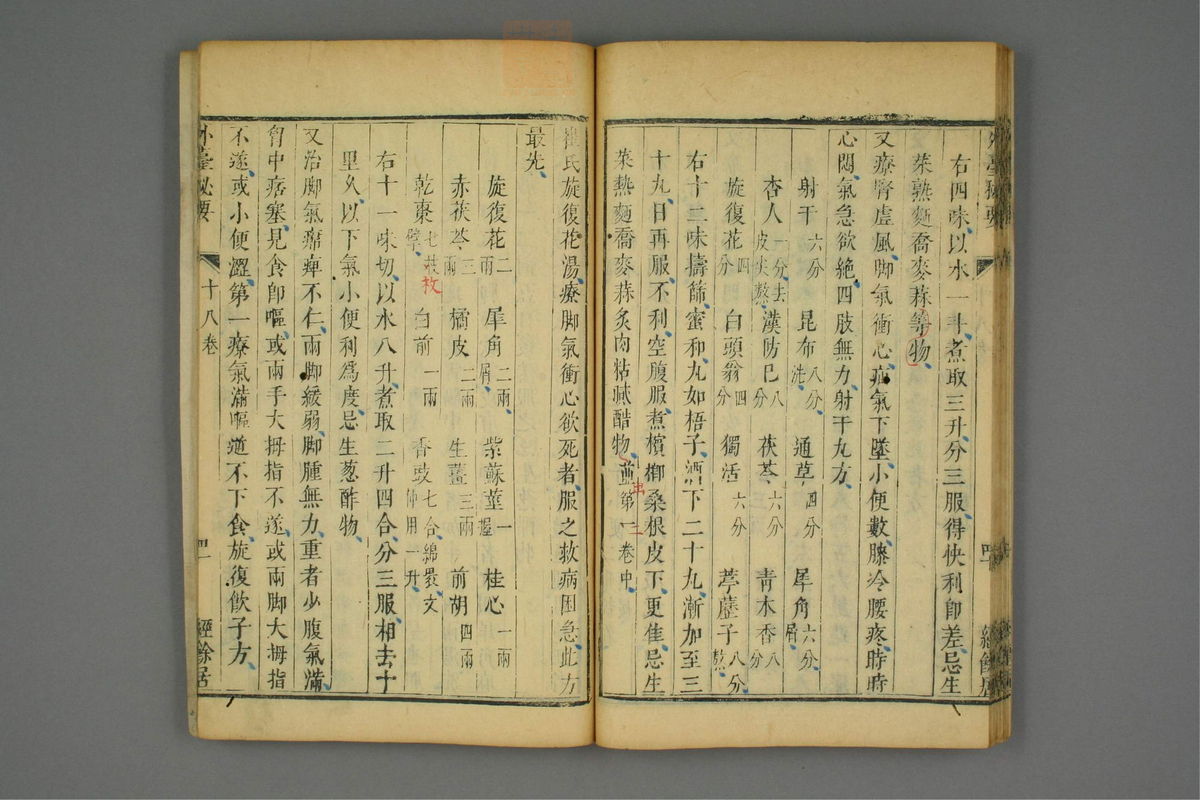 外臺秘要
右四味以水一斗煮取三升分三服得快利即差忌生
菜熟麵喬麥蒜等物
又療腎虛風脚氣衝心疝氣下墜小便數膝冷腰疼時時
心悶氣急欲絶四肢無力射干丸方
射干六分 昆布八分洗 通草四分 犀角六分屑
杏人一分去皮尖熬 漢防巳八分 茯苓六分 青木香八分
旋復花四分 白頭翁四分 獨活六分 葶藶子八分熬
右十二味擣篩蜜和丸如梧子酒下二十九漸加至三
十九日再服不利空腹服煮檳榔桑根皮下更佳忌生
菜熱麵喬麥蒜炙肉粘膩醋物並出第一卷中
崔氏旋復花湯療脚氣衝心欲死者服之救病困急此方
最先
旋復花二兩 犀角二兩屑 紫蘇莖一握 桂心一兩
赤茯苓三兩 橘皮二兩 生薑三兩 前胡四兩
乾棗七枚擘 白前一兩 香豉七合綿裹文仲用一升
右十一味切以水八升煮取二升四合分三服相去十
里久以下氣小便利爲度忌生葱酢物
又治脚氣㿏痺不仁兩脚緩弱脚腫無力重者少腹氣滿
胷中痞塞見食即嘔或兩手大拇指不遂或兩脚大拇指
不遂或小便澀第一療氣滿嘔逆不下食旋復飲子方
外臺秘要 十八卷 四一 經餘居